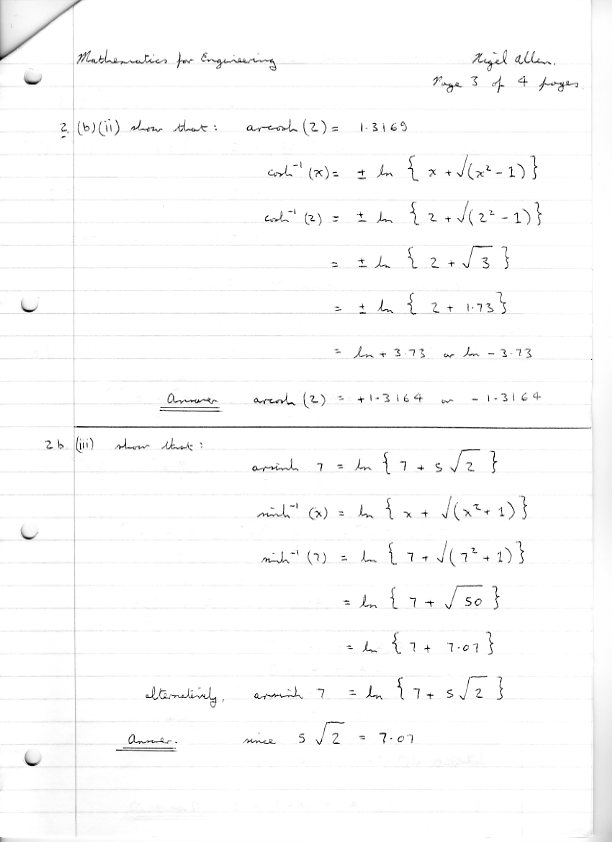 Mathematics for Engineering
Nigel Allen.
Page 3 of 4 pages
2 (b)(ii) show that: arcosh (2) = 1.3169
cosh⁻¹ (x) = ± ln { x + √(x² - 1)}
cosh⁻¹ (2) = ± ln { 2 + √(2² - 1)}
= ± ln { 2 + √3 }
= ± ln { 2 + 1.73}
= ln + 3.73 or ln - 3.73
Answer arcosh (2) = +1.3164 or - 1.3164
2b (iii) show that:
arsinh 7 = ln { 7 + 5√2 }
sinh⁻¹ (x) = ln { x + √(x² + 1)}
sinh⁻¹ (7) = ln { 7 + √(7² + 1)}
= ln { 7 + √50 }
= ln { 7 + 7.07}
alternatively, arsinh 7 = ln { 7 + 5√2 }
Answer. since 5√2 = 7.07